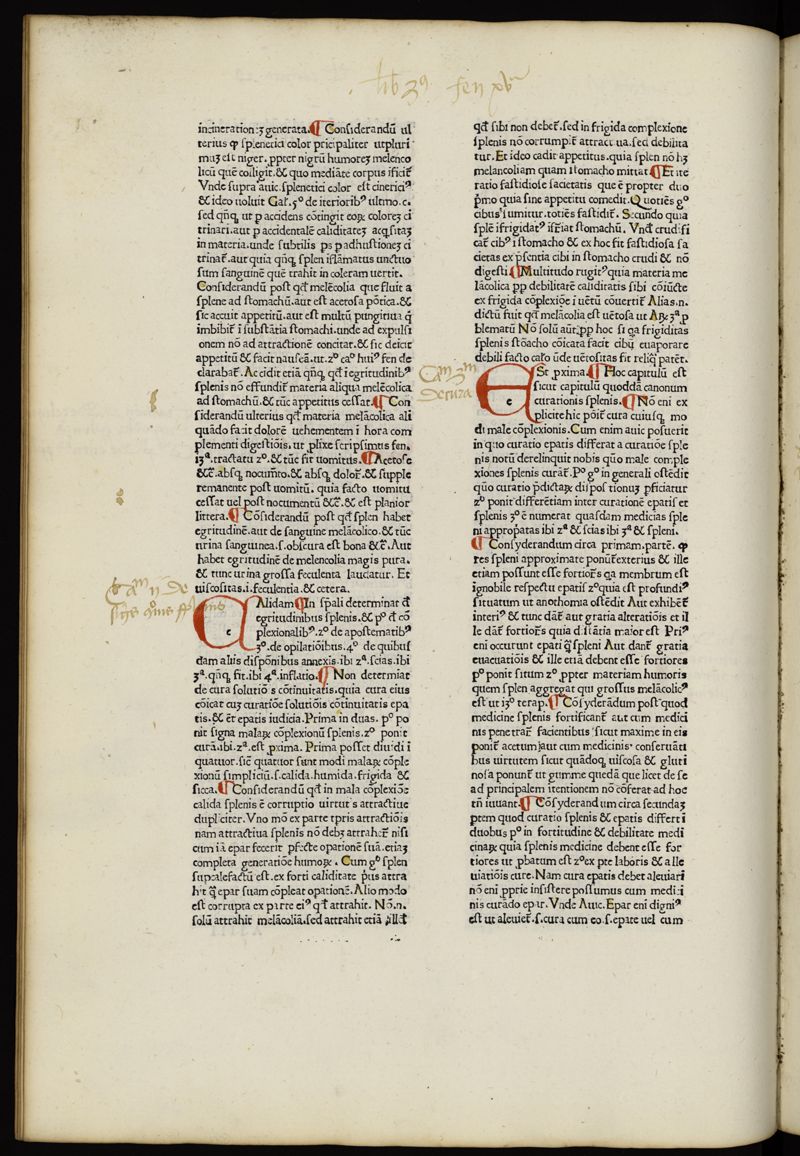 lib 3ꝰ fen xvᵃ
incineration:ꝫ generata.¶ Considerandū ul
terius ꝙ splenetici color pricipaliter utpluri
muꝫ est niger. ꝓpter nigrū humoreꝫ melenco
licū quē colligit.& quo mediāte corpus ificit̄
Vnde supra auic. splenetici color est cinericiꝰ
& ideo uoluit Gal̄. 5º de iterioribꝰ ultimo .c.
sed qñqꝫ ut p accidens cōtingit eoꝝ coloreꝫ ci
trinari. aut p accidentalē caliditateꝫ acqsitaꝫ
in materia. unde subtilis ps padhustioneꝫ ci
trinat̄. aut quia qñqꝫ splen iflāmatus unctuo
sum sanguinē quē trahit in coleram uertit.
Considerandū post qđ melēcolia que fluit a
splene ad stomachū. aut est acetosa pōtica. &
sic acuit appetitū. aut est multū pungitiua q̄
imbibit̄ ī substātia stomachi. unde ad expulsi
onem nō ad attractionē concitat. & sic deicit
appetitū & facit nauseā. ut. 2º caº huiꝰ fen de
clarabat̄. Accidit etiā qñqꝫ qđ ī egritudinibꝰ
splenis nō effundit̄ materia aliqua melēcolica
ad stomachū. & tūc appetitus cessat. ¶ Con
siderandū ulterius qđ materia melācolica ali
quādo facit dolorē uehementem ī hora com
plementi digestiōis. ut ꝓlixe scripsimus fen.
13ᵃ. tractatu 2º. & tūc fit uomitus. ¶ Acetose
&c̄. absqꝫ nocum̄to. & absqꝫ dolor̄. & supple
remanente post uomitū. quia facto uomitu
cessat uel post nocumentū &c̄. & est planior
littera. ¶ Cōsiderandū post qđ splen habet
egritudinē. aut de sanguine melācolico. & tūc
urina sanguinea. s. obscura est bona &c̄. Aut
habet egritudinē de melencolia magis pura.
& tunc urina grossa feculenta laudatur. Et
uiscositas. i. feculentia. & cetera.
Cᵃᵐ 2ᵐ De
signis
c
Alidam ¶ In spali determinat đ
egritudinibus splenis. & pº đ cō
plexionalibꝰ. 2º de apostematibꝰ
3º. de opilatiōibus. 4º de quibus
dam aliis dispōnibus annexis. ibi 2ᵃ. scias. ibi
3ᵃ. qñqꝫ fit. ibi 4ᵃ. inflatio. ¶ Non determiat
de cura solutiōs cōtinuitatis. quia cura eius
cōicat cuꝫ curatiōe solutiōis cōtinuitatis epa
tis. & ēt epatis iudicia. Prima in duas. pº po
nit signa malaꝝ cōplexionū splenis. 2º ponit
curā. ibi. 2ᵃ. est ꝓxima. Prima posset diuidi ī
quatuor. sic̄ quatuor sunt modi malaꝝ cōple
xionū simpliciū. s. calida. humida. frigida &
sicca. ¶ Considerandū qđ in mala cōplexiōe
calida splenis ē corruptio uirtutis attractiue
dupliciter. Vno mō ex parte tpris attractiōis
nam attractiua splenis nō debꝫ attraher̄ nisi
cum iā epar fecerit pfecte opationē suā. etiaꝫ
completa generatiōe humoꝝ. Cum gº splen
supcalefactū est. ex forti caliditate pus attra
hit q̄ epar suam cōpleat opationē. Alio modo
est corrupta ex parte eiꝰ qđ attrahit. Nō.n.
solū attrahit melācoliā. sed attrahit etiā illđ
qđ sibi non debet̄. sed in frigida complexione
splenis nō corrumpit̄ attractiua. sed debilita
tur. Et ideo cadit appetitus. quia splen nō hꝫ
melancoliam quam ī stomacho mittat ¶ Et ite
ratio fastidiose sacietatis que ē propter duo
p̄mo quia sine appetitu comedit. Quotiēs gº
cibus sumitur. totiēs fastidit̄. Secundo quia
splē ifrigidatꝰ ifr̄iat stomachū. Vnđ crudisi
cat̄ cibꝰ ī stomacho & ex hoc fit fastidiosa sa
cietas ex p̄sentia cibi in stomacho crudi & nō
digesti ¶ Multitudo rugitꝰ quia materia me
lācolica pp debilitatē caliditatis sibi cōiūcte
ex frigida cōplexiōe ī uētū cōuertit̄ Alias.n.
dictū fuit qđ melācolia est uētosa ut Aꝝ 3ᵃ ꝓ
blematū Nō solū aūt pp hoc si qa frigiditas
splenis stōacho cōicata facit cibū euaporare
debili facto calōr ūde uētositas fit reliq̄ patēt.
Cᵃᵐ 3ᵐ
De cura
e
St ꝓxima. ¶ Hoc capitulū est
sicut capitulū quoddā canonum
curationis splenis. ¶ Nō eni ex
plicite hic pōit̄ cura cuiusqꝫ mo
di male cōplexionis. Cum enim auic posuerit
in quo curatio epatis differat a curatiōe sple
nis notū derelinquit nobis quō male comple
xiones splenis curāt̄. Pº gº in generali ostēdit
quō curatio p̄dictaꝝ dispositionuꝫ pficiatur
2º ponit differētiam inter curationē epatis et
splenis 3º ē numerat quasdam medicias sple
ni appropatas ibi 2ᵃ & scias ibi 3ᵃ & spleni.
¶ Consyderandum circa primam. partē. ꝙ
res spleni approximate ponūt̄ exterius & ille
etiam possunt esse fortior̄s qa membrum est
ignobile respectu epatis 2º quia est profundiꝰ
situatum ut anothomia ostēdit Aut exhibēt̄
interiꝰ & tunc dāt̄ aut gratia alteratiōis et il
le dāt̄ fortior̄s quia distātia maior est Priꝰ
eni occurunt epati q̄ spleni Aut dant̄ gratia
euacuatiōis & ille etiā debent esse fortiores
pº ponit situm 2º ꝓpter materiam humoris
quem splen aggregat qui grossus melācolicꝰ
est ut 13º terap. ¶ Cōsyderādum post quod
medicine splenis fortificant̄ aut cum medici
nis penetrat̄ facientibus sicut maxime in eis
ponit̄ acetum aut cum medicinis conseruāti
bus uirtutem sicut quādoqꝫ uiscosa & gluti
nosa ponunt̄ ut gumme quedā que licet de se
ad principalem itentionem nō cōferat ad hoc
tn̄ iuuant. ¶ Cōsyderandum circa secundaꝫ
ptem quod curatio splenis & epatis differt ī
duobus pº in fortitudine & debilitate medi
cinaꝝ quia splenis medicine debent esse for
tiores ut ꝓbatum est 2º ex pte laboris & alle
uiatiōis cure. Nam cura epatis debet aleuiari
nō eni ꝓprie insistere possumus cum medici
nis curādo epar. Vnde Auic. Epar eni digniꝰ
est ut aleuiet̄. s. cura cum eo. s. epate uel cum